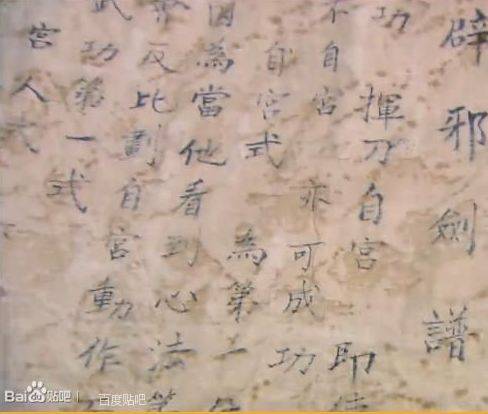 辟邪劍譜
功 揮刀自宮 即
不自宮 亦可成功
自宮式 為第一
因為當他看到心法第
反比劃自宮動作
武功第一式
宮人式
Bai 贴吧 百度贴吧